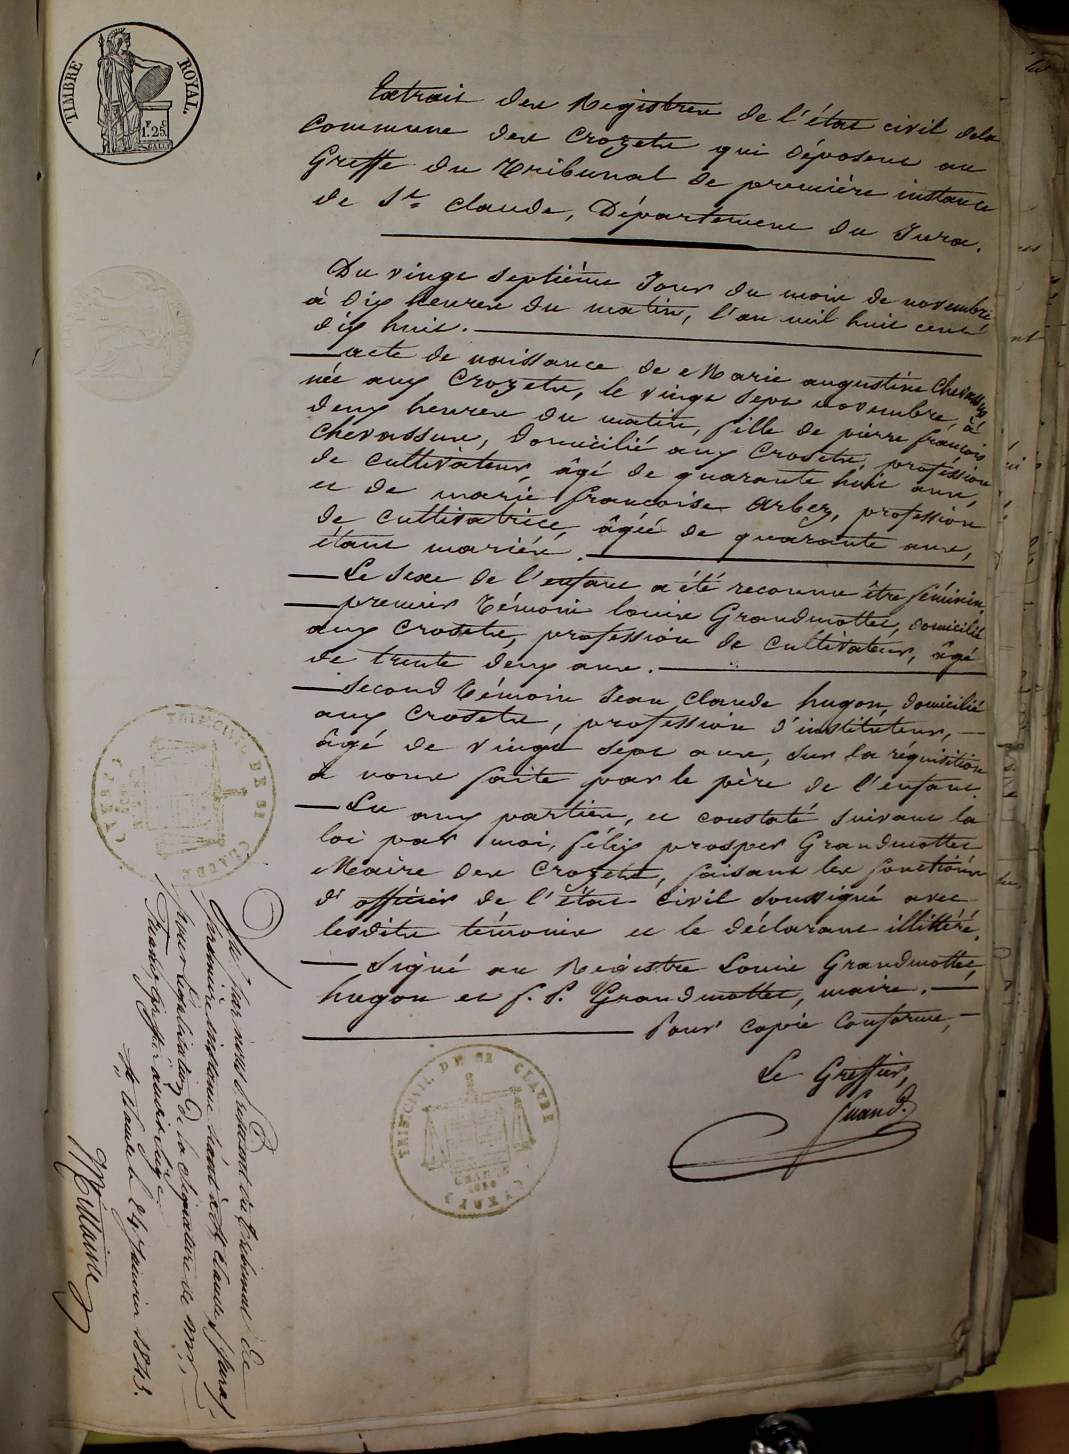 TIMBRE ROYAL
1.25
Extrait des Registres de l'état civil de la
Commune des Crozets qui déposent au
Greffe du Tribunal de première instance
de St. Claude, Département du Jura.
Du vingt septième Jour du mois de novembre
à dix heures du matin, l'an mil huit cent
dix huit.
acte de naissance de Marie augustine Chevassus
née aux Crozets, le vingt sept novembre, à
deux heures du matin, fille de pierre françois
Chevassus, domicilié aux Crosets, profession
de cultivateur, âgé de quarante huit ans,
et de marie françoise Arbez, profession
de cultivatrice, âgée de quarante ans,
étant mariés.
Le Sexe de l'enfant a été reconnu être féminin.
premier témoin louis Grandmottet, domicilié
aux Crosets, profession de cultivateur, âgé
de trente deux ans.
Second témoin Jean Claude hugon, domicilié
aux Crosets, profession d'instituteur,
âgé de vingt sept ans, sur la réquisition
à nous faite par le père de l'enfant.
Lu aux parties, et constaté suivant la
loi par moi, félix prosper Grandmottet
Maire des Crozets, faisant les fonctions
d'officier de l'état civil soussigné avec
lesdits témoins et le déclarant illittéré.
Signé au Registre Louis Grandmottet,
hugon et f. P. Grandmottet, maire.
Pour copie conforme,
Le Greffier,
TRIB. CIVIL DE ST CLAUDE
(JURA)
TRIB. CIVIL DE ST CLAUDE
(JURA)
CHARTE
1830
Vu par nous Président du Tribunal de
première instance séant à St Claude (Jura)
pour légalisation de la signature de Mr
greffier audit siège
St Claude le 24 Janvier 1843.